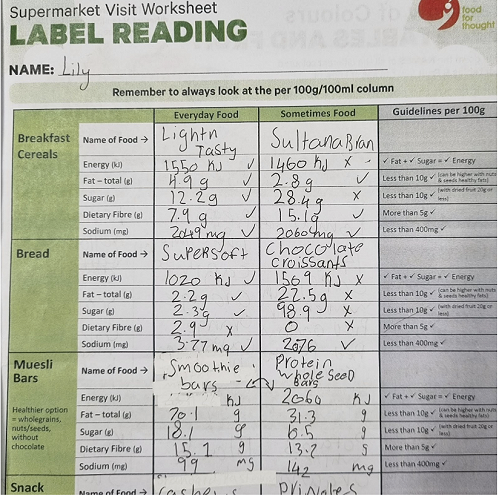 Supermarket Visit Worksheet
LABEL READING
food
for
thought
NAME: Lily
Remember to always look at the per 100g/100ml column
Everyday Food Sometimes Food Guidelines per 100g
Breakfast Cereals Name of Food → Lightn Tasty Sultana Bran
Energy (kJ) 1550 KJ ✓ 1460 KJ x - ✓ Fat + ✓ Sugar = ✓ Energy
Fat – total (g) 4.9 g ✓ 2.8g ✓ Less than 10g ✓ (can be higher with nuts & seeds healthy fats)
Sugar (g) 12.2g ✓ 28.4g x Less than 10g ✓ (with dried fruit 20g or less)
Dietary Fibre (g) 7.9 g ✓ 15.1g ✓ More than 5g ✓
Sodium (mg) mg ✓ mg ✓ Less than 400mg ✓
Bread Name of Food → Supersoft Chocolate croissants
Energy (kJ) 1020 KJ ✓ 1569 KJ x ✓ Fat + ✓ Sugar = ✓ Energy
Fat – total (g) 2.2g ✓ 22.5g x Less than 10g ✓ (can be higher with nuts & seeds healthy fats)
Sugar (g) 2.3g ✓ 98.9 x Less than 10g ✓ (with dried fruit 20g or less)
Dietary Fibre (g) 2.9 x 0 x More than 5g ✓
Sodium (mg) 3.77 mg ✓ ✓ Less than 400mg ✓
Muesli Bars Name of Food → Smoothie bars Protein whole seed bars
Healthier option = wholegrains, nuts/seeds, without chocolate
Energy (kJ) KJ 2060 KJ ✓ Fat + ✓ Sugar = ✓ Energy
Fat – total (g) 20.1 g 31.3 g Less than 10g ✓ (can be higher with nuts & seeds healthy fats)
Sugar (g) 18.1 g g Less than 10g ✓ (with dried fruit 20g or less)
Dietary Fibre (g) 15.1 g 13.2 g More than 5g ✓
Sodium (mg) 99 mg 142 mg Less than 400mg ✓
Snack Name of Food →